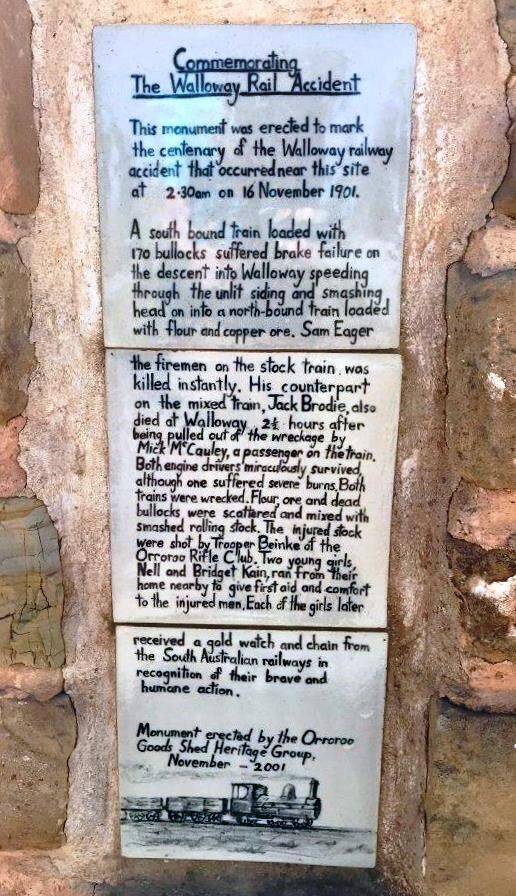 Commemorating
The Walloway Rail Accident
This monument was erected to mark
the centenary of the Walloway railway
accident that occurred near this site
at 2·30am on 16 November 1901.
A south bound train loaded with
170 bullocks suffered brake failure on
the descent into Walloway speeding
through the unlit siding and smashing
head on into a north-bound train loaded
with flour and copper ore. Sam Eager
the firemen on the stock train, was
killed instantly. His counterpart
on the mixed train, Jack Brodie, also
died at Walloway 2½ hours after
being pulled out of the wreckage by
Mick McCauley, a passenger on the train.
Both engine drivers miraculously survived,
although one suffered severe burns. Both
trains were wrecked. Flour, ore and dead
bullocks were scattered and mixed with
smashed rolling stock. The injured stock
were shot by Trooper Beinke of the
Orroroo Rifle Club. Two young girls,
Nell and Bridget Kain, ran from their
home nearby to give first aid and comfort
to the injured men. Each of the girls later
received a gold watch and chain from
the South Australian railways in
recognition of their brave and
humane action.
Monument erected by the Orroroo
Goods Shed Heritage Group,
November - 2001